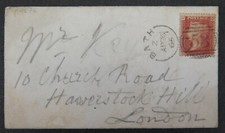 Mr
10 Church Road
Haverstock Hill
London
BATH